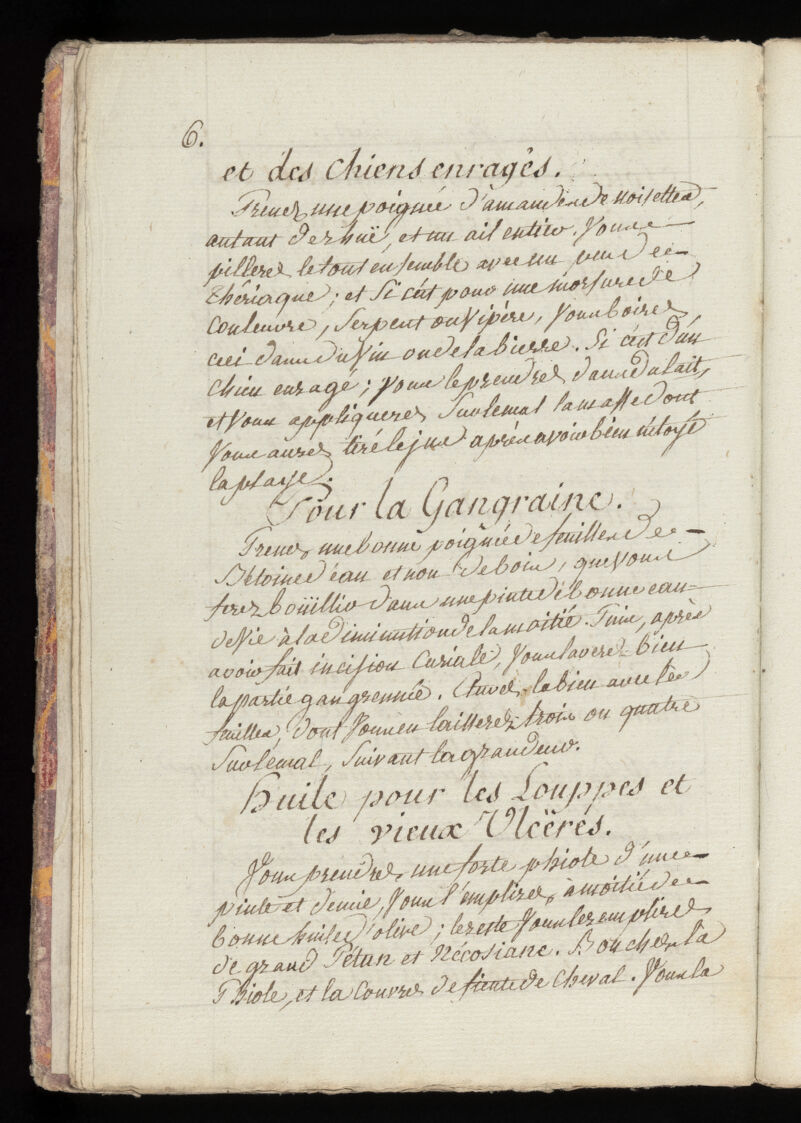 6.
et des chiens enragés.
Prenez une poignée d'amandes de noisettes,
autant de rhuë, et un ail entier. Vous
pillerez le tout ensemble avec un peu de
thériaque; et si c'est pour une morsure de
Couleuvre, Serpent ou Vipère, Vous boirez,
ceci dans du Vin ou de la bierre. Si c'est d'un
Chien enragé; Vous le prendrez dans du lait,
et Vous appliquerez Sur le mal la masse dont
Vous aurez tiré le jus après avoir bien nétoyé
la playe.
Pour la Gangraine.
Prenez une bonne poignée de feuilles de
Bétoine d'éau et non de bois, que Vous
ferez boüillir dans une pinte de bonne eau
de Vie à la diminution de la moitié. Puis, après
avoir fait incision Curiale, Vous laverez bien
la partie gangrennée. Etuvez-le bien avec les
feuilles, dont Vous en laisserez trois ou quatre
Sur le mal, Suivant la grandeur.
Huile pour les Louppes et
les vieux Ulcëres.
Vous prendrez une forte phiole d'une
pinte et demie, Vous l'emplirez à moitié de
bonne huile d'olive; le reste Vous l'emplirez
de grand Pétun et Nécosiane. Bouchez la
Phiole, et la Couvrez de fiente de Cheval. Vous la